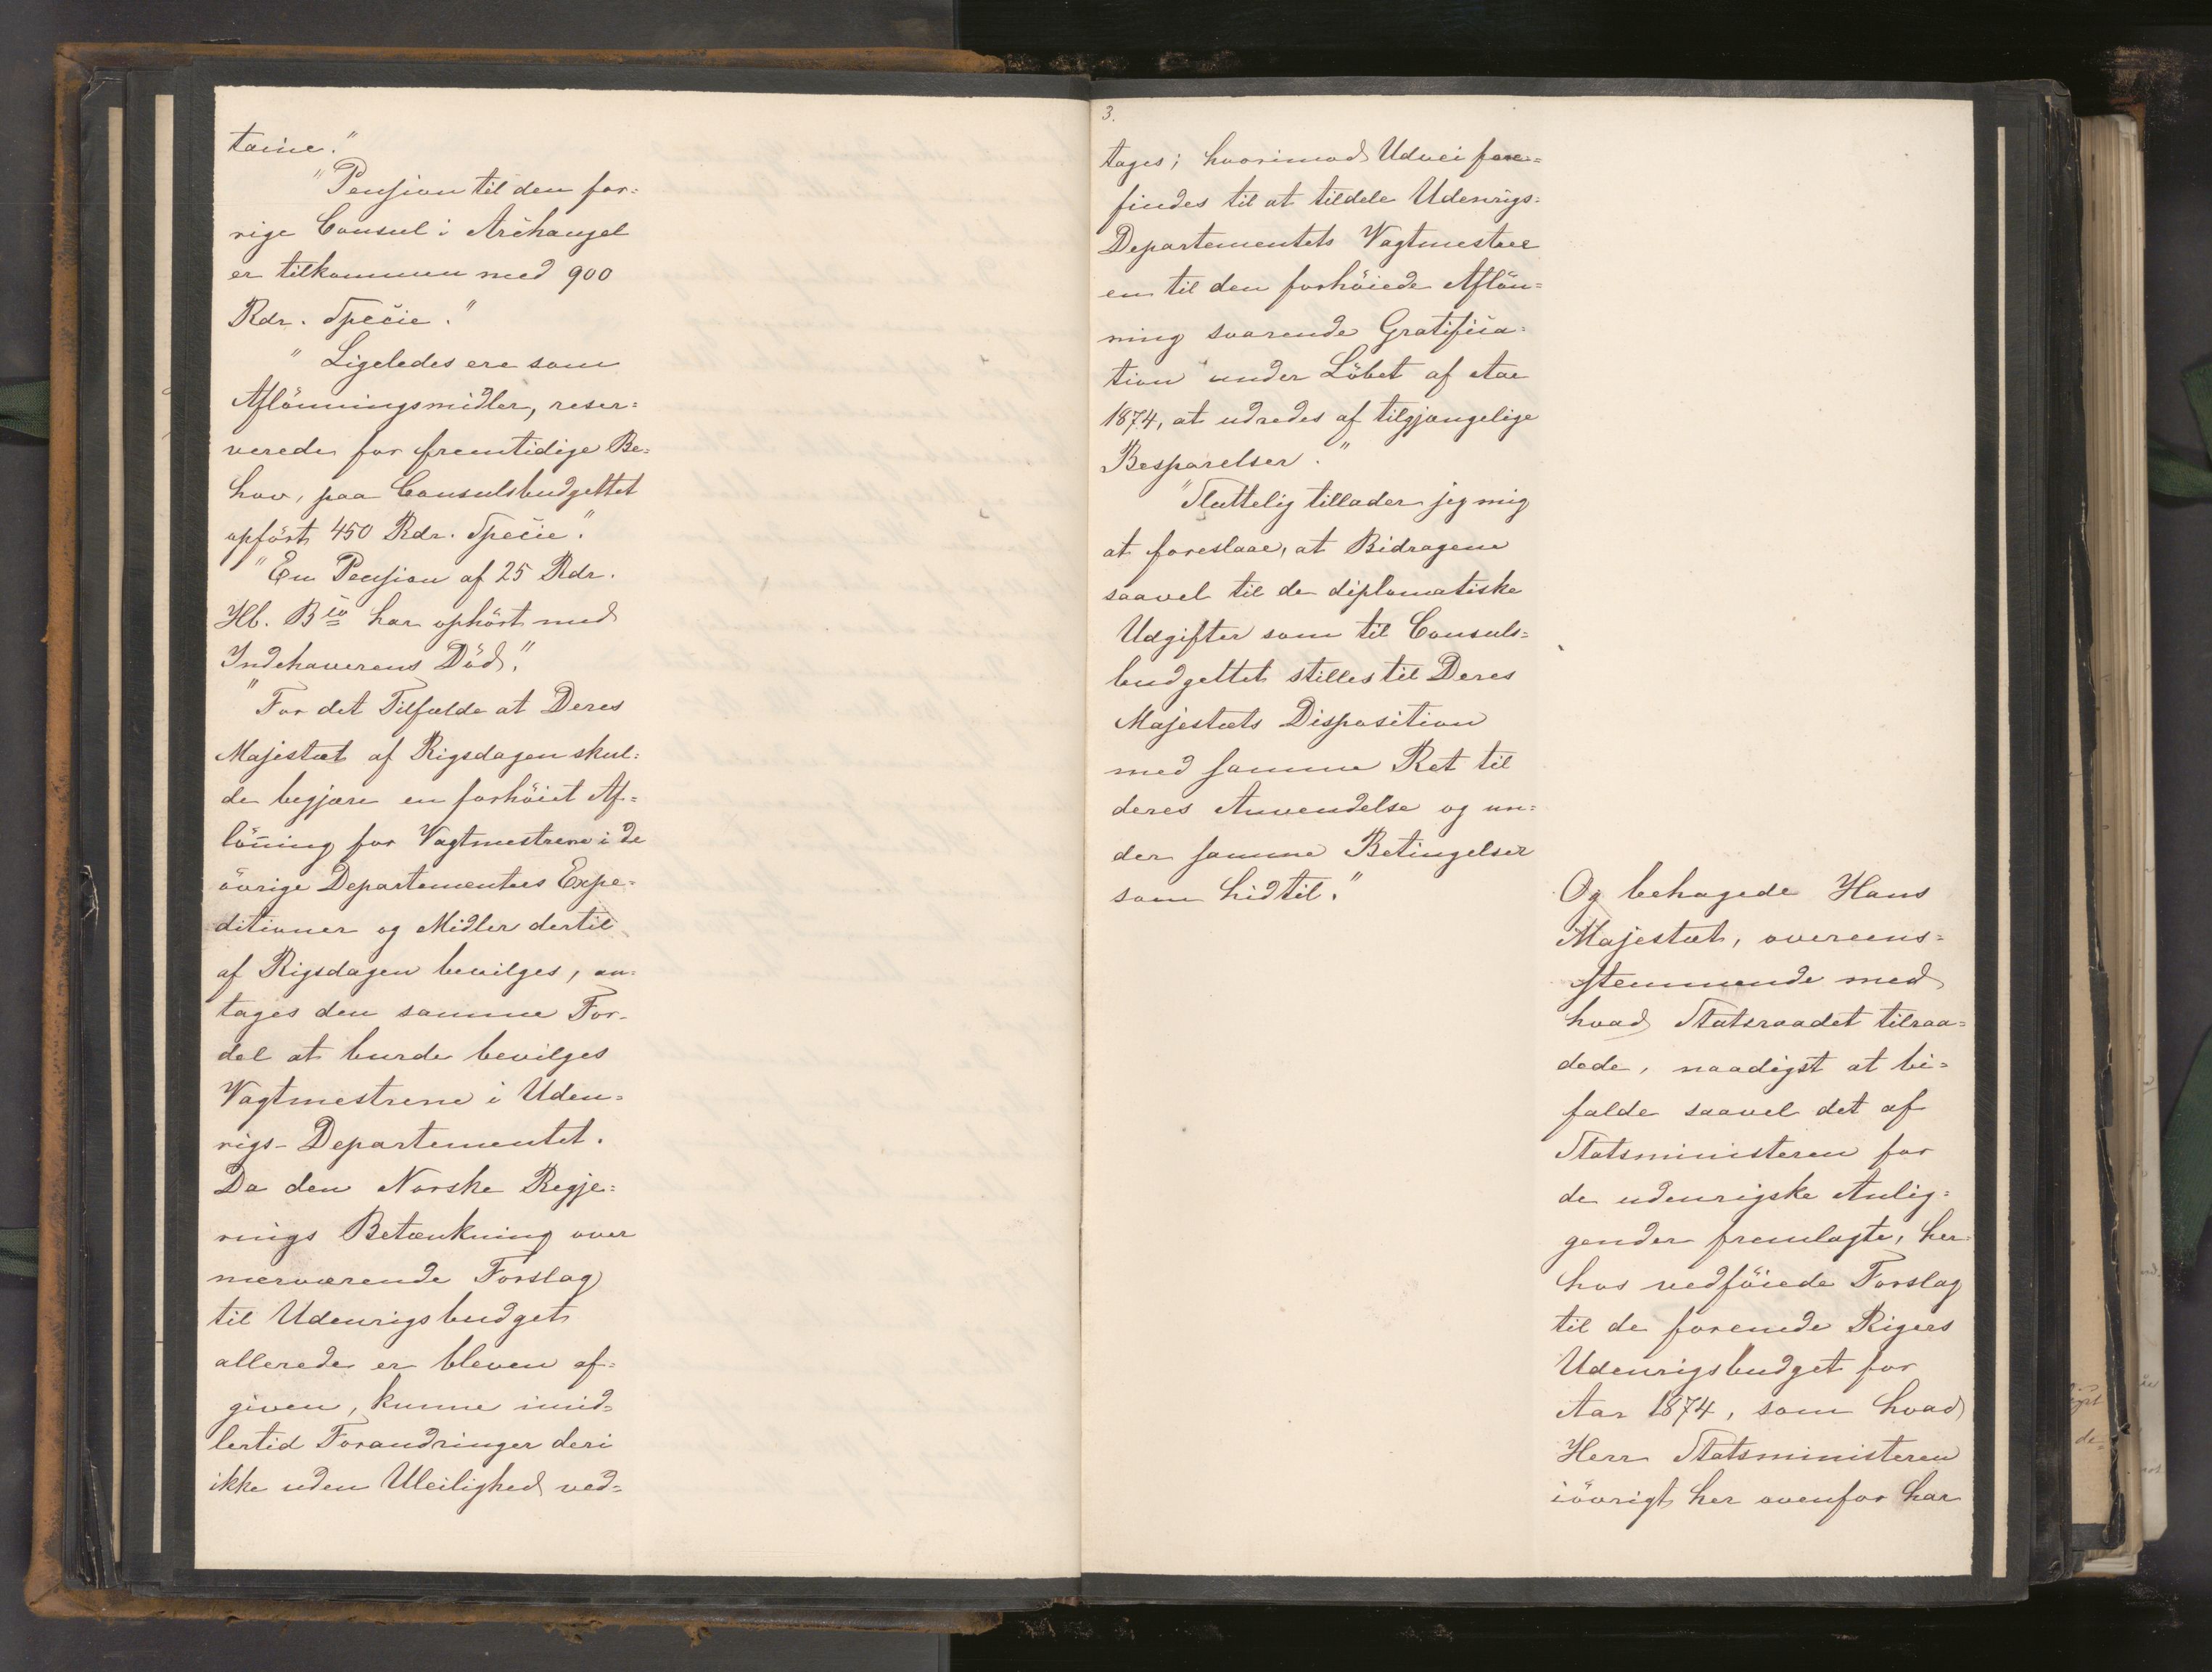 taine."
"Pension til den for-
rige Consul i Archangel
er tilkommen med 900
Rdr. Specie."
"Ligeledes ere som
Aflönningsmidler, reser-
verede for fremtidige Be-
hov, paa Consulsbudgettet
opfört 450 Rdr. Specie."
"En Pension af 25 Rdr.
Hb. Bco har ophört med
Indehaverens Död."
"For det Tilfælde at Deres
Majestæt af Rigsdagen skul-
de begjære en forhöiet Af-
löning for Vagtmestrene i de
övrige Departementers Expe-
ditioner og Midler dertil
af Rigsdagen bevilges, an-
tages den samme For-
del at burde bevilges
Vagtmestrene i Uden-
rigs-Departementet.
Da den Norske Regje-
rings Betænkning over
nærværende Forslag
til Udenrigsbudget
allerede er bleven af-
given, kunne imid-
lertid Forandringer deri
ikke uden Uleilighed ved-
3.
tages; hvorimod Udvei fore-
findes til at tildele Udenrigs-
Departementets Vagtmestere
en til den forhöiede Aflön-
ning svarende Gratifica-
tion under Löbet af Aar
1874, at udredes af tilgjængelige
Besparelser."
"Sluttelig tillader jeg mig
at foreslaae, at Bidragene
saavel til de diplomatiske
Udgifter som til Consuls-
budgettet stilles til Deres
Majestæts Disposition
med samme Ret til
deres Anvendelse og un-
der samme Betingelser
som hidtil."
Og behagede Hans
Majestæt, overeens-
stemmende med
hvad Statsraadet tilraa-
dede, naadigst at bi-
falde saavel det af
Statsministeren for
de udenrigske Anlig-
gender fremlagte, her-
hos vedföiede Forslag
til de forenede Rigers
Udenrigsbudget for
Aar 1874, som hvad
Herr Statsministeren
iövrigt her ovenfor har